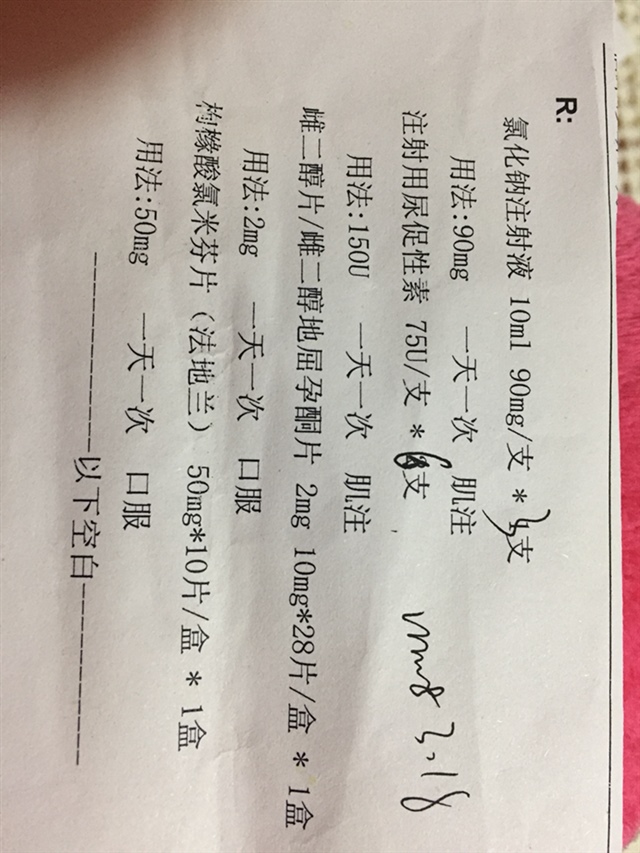 R:
氯化钠注射液 10ml 90mg/支 * 3支
用法:90mg 一天一次 肌注
注射用尿促性素 75U/支 * 6支
用法:150U 一天一次 肌注
雌二醇片/雌二醇地屈孕酮片 2mg 10mg*28片/盒 * 1盒
用法:2mg 一天一次 口服
枸橼酸氯米芬片(法地兰) 50mg*10片/盒 * 1盒
用法:50mg 一天一次 口服
----------以下空白----------
3.18